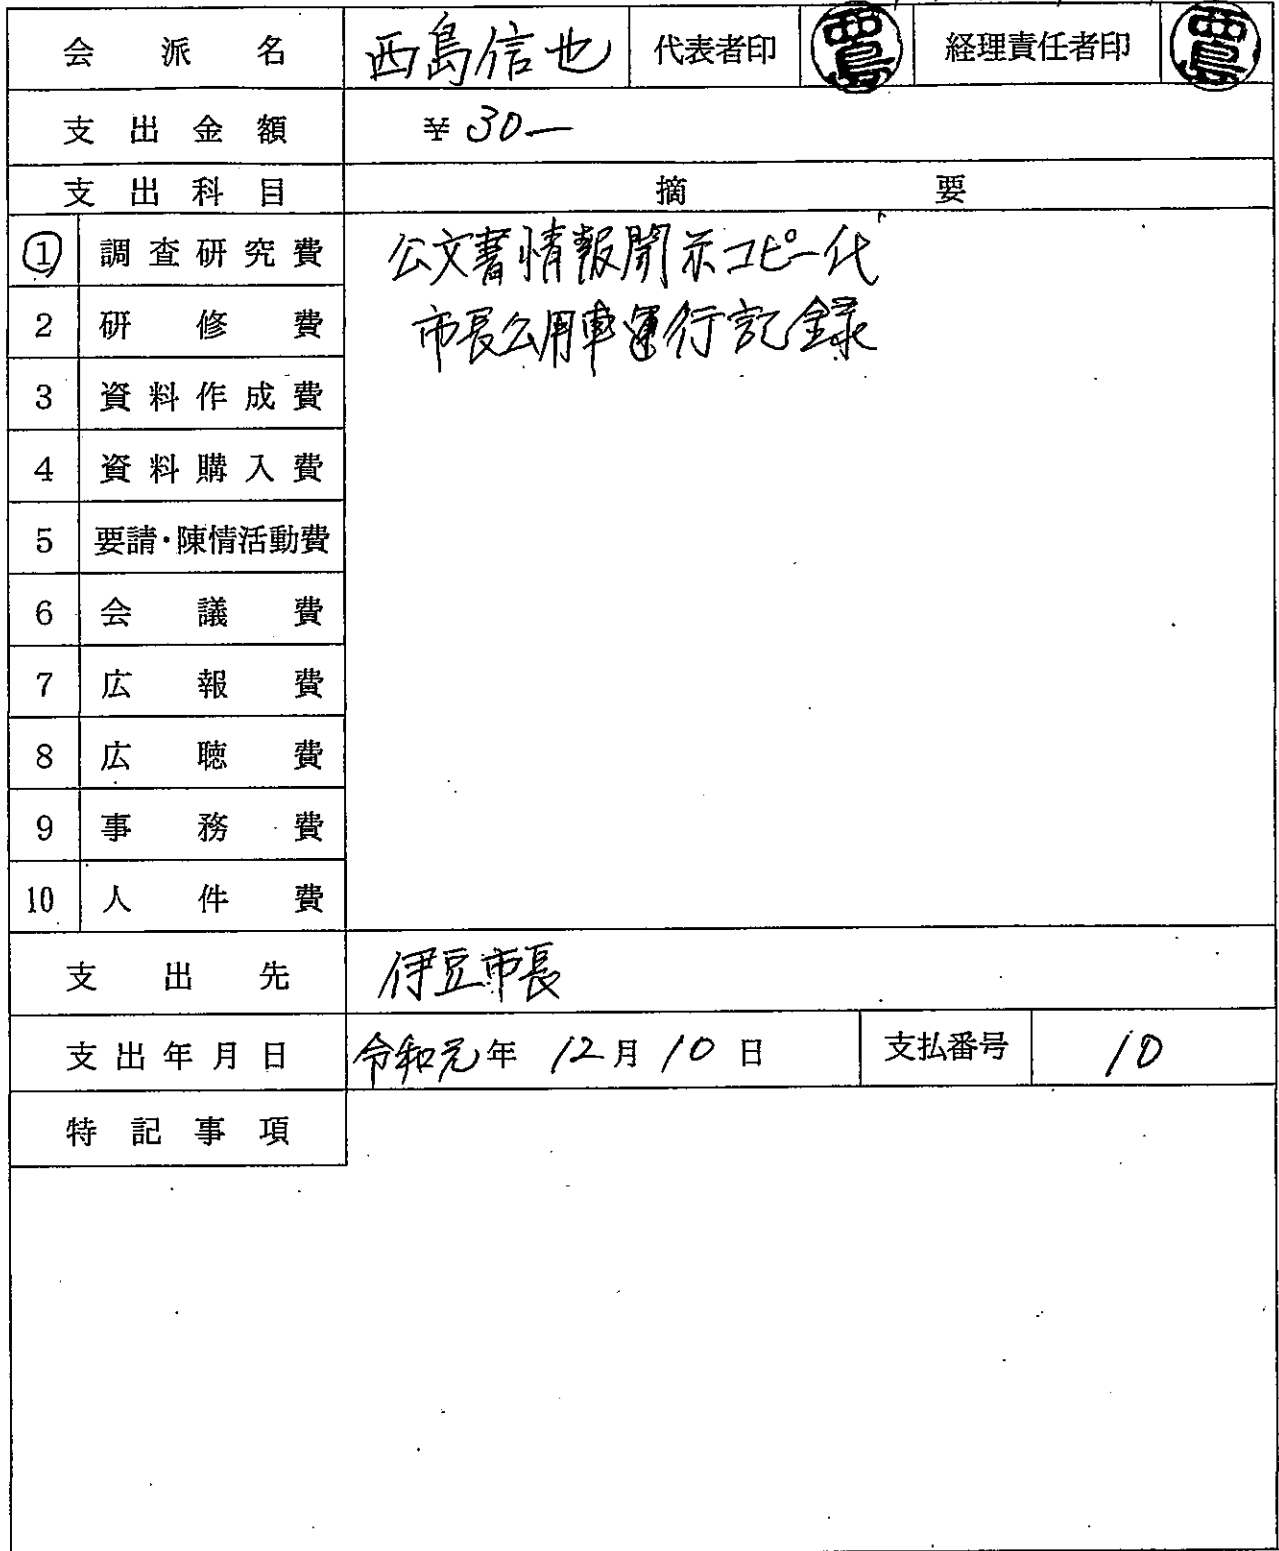 会派名 西島信也 代表者印 西島 経理責任者印 西島
支出金額 ¥30—
支出科目 摘要
① 調査研究費 公文書情報開示コピー代
2 研修費 市長公用車運行記録
3 資料作成費
4 資料購入費
5 要請・陳情活動費
6 会議費
7 広報費
8 広聴費
9 事務費
10 人件費
支出先 伊豆市長
支出年月日 令和元年 12月 10日 支払番号 10
特記事項